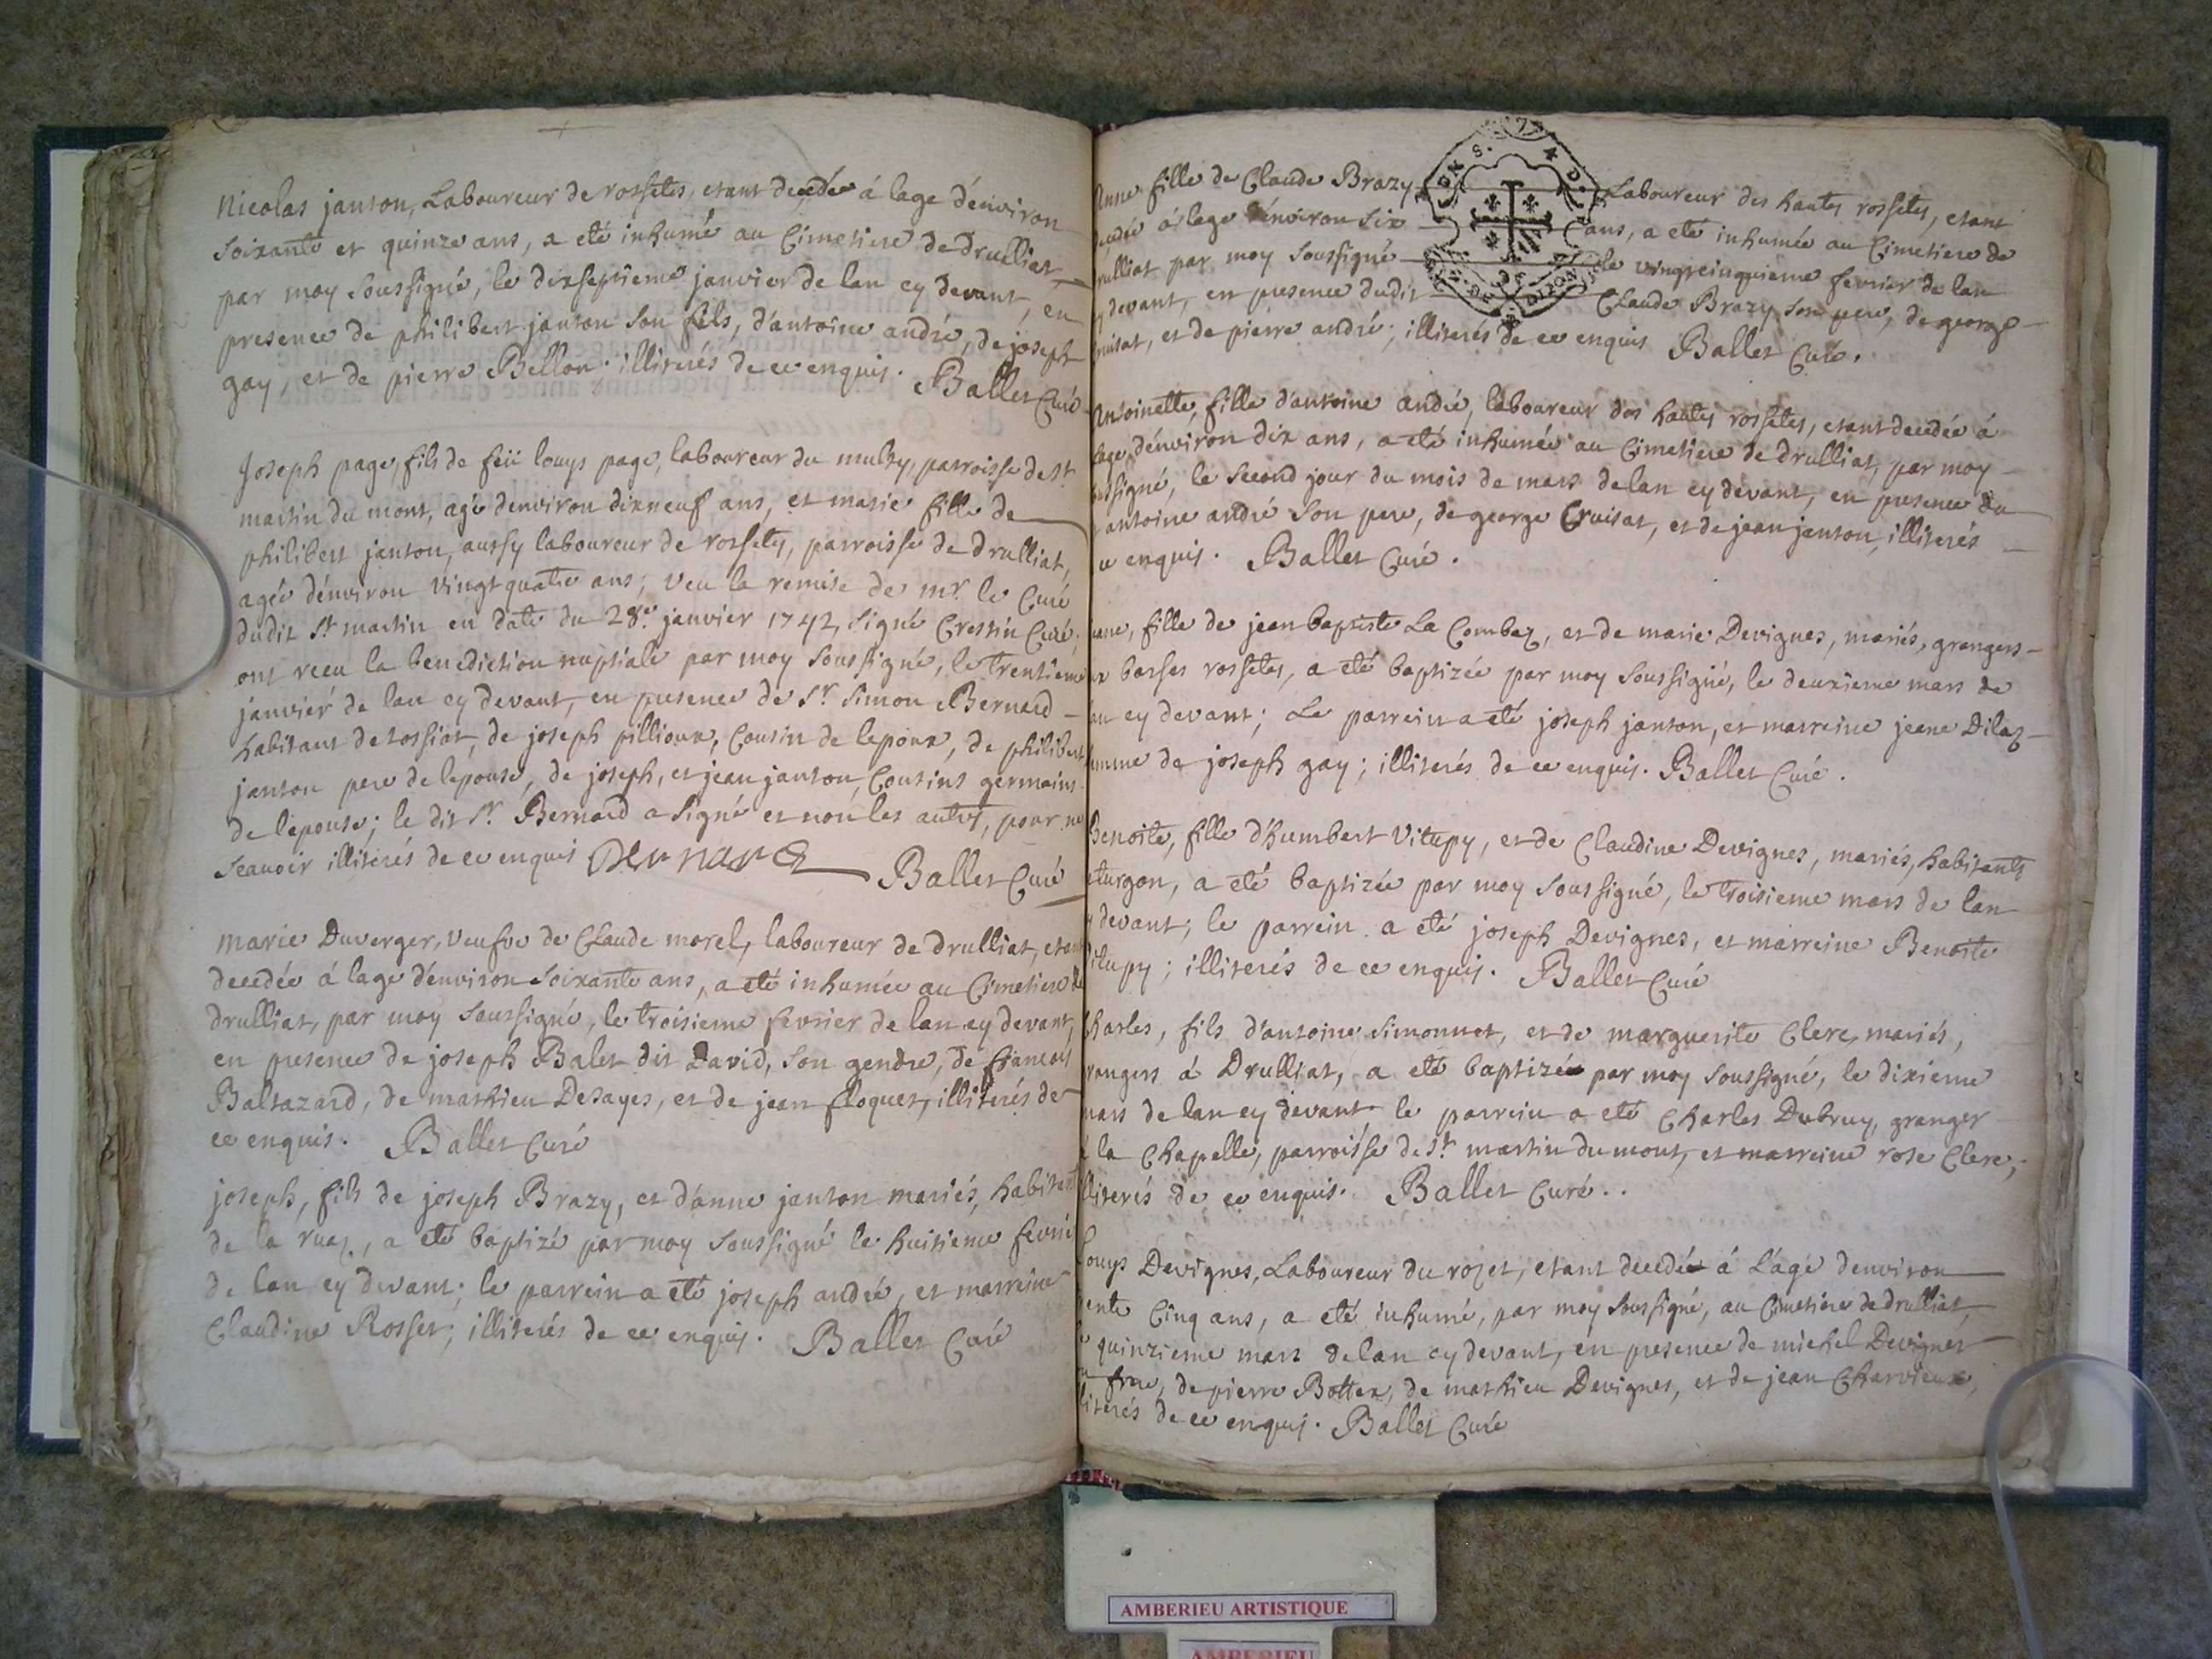 Nicolas janton, Laboureur de rossetes, etant decedée á lage d'environ
soixante et quinze ans, a eté inhumé au Cimetiere de drulliat,
par moy soussigné, le dixseptieme janvier de lan cy devant, en
presence de philibert janton son fils, d'antoine andré, de joseph
gay, et de pierre Bellon illiterés de ce enquis. Ballet Curé
Joseph page, fils de feü louys page, laboureur du mulzy, parroisse de St
martin du mont, agé denviron dixneuf ans, et marie fille de
philibert janton, aussy laboureur de rossetes, parroisse de drulliat,
agée d'environ vingt quatre ans; veu la remise de mr. le Curé
dudit St martin en date du 28e. janvier 1742, signé Crestin Curé;
ont receu la benediction nuptiale par moy soussigné, le trentieme
janvier de lan cy devant, en presence de Sr. Simon Bernard
habitant de tossiat, de joseph pillioux, Cousin de lepoux, de philibert
janton pere de lepouse, de joseph, et jean janton, Cousins germains
de lepouse; le dit Sr. Bernard a signé et non les autres, pour ne
scauoir illiterés de ce enquis Bernard Ballet Curé
marie Duverger, veufve de Claude morel, laboureur de drulliat, etant
decedée á lage d'environ soixante ans, a eté inhumée au Cimetiere de
drulliat, par moy soussigné, le troisieme fevrier de lan cy devant,
en presence de joseph Balet dit David, son gendre, de francois
Baltazard, de mathieu Desayes, et de jean floquet, illiterés de
ce enquis. Ballet Curé
joseph, fils de joseph Brazy, et d'anne janton mariés, habitant
de la ruaz, a eté baptizé par moy soussigné le huitieme fevrié
de lan cy devant; le parrein a eté joseph andré, et marreine
Claudine Rosset; illiterés de ce enquis. Ballet Curé
Anne fille de Claude Brazy Laboureur des hautes rossetes, etant
decedée á lage d'environ six ans, a eté inhumée au Cimetiere de
rulliat par moy soussigné le vingtcinquieme fevrier de lan
y devant, en presence dudit Claude Brazy son pere, de george
ruisat, et de pierre andré; illiterés de ce enquis Ballet Curé.
Antoinette, fille d'antoine andré, laboureur des hautes rossetes, etant decedée á
lage d'environ dix ans, a eté inhumée au Cimetiere de drulliat, par moy
ssigné, le second jour du mois de mars de lan cy devant, en presence du
antoine andré son pere, de george Cruisat, et de jean janton, illiterés
ce enquis. Ballet Curé.
ane, fille de jean baptiste La Combaz, et de marie Devignes, mariés, grangers
ux basses rossetes, a eté baptizée par moy soussigné, le deuxieme mars de
an cy devant; Le parrein a eté joseph janton, et marreine jeane Dilaz
mme de joseph gay; illiterés de ce enquis. Ballet Curé.
Benoite, fille d'humbert Vitupy, et de Claudine Devignes, mariés, habitants
eturgon, a eté baptizée par moy soussigné, le troisieme mars de lan
y devant; le parrein a eté joseph Devignes, et marreine Benoite
itupy; illiterés de ce enquis. Ballet Curé
Charles, fils d'antoine Simonnet, et de marguerite Clerc, mariés,
rangers á Drulliat, a eté baptizée par moy soussigné, le dixieme
mars de lan cy devant le parrein a eté Charles Dubruy, granger
á la Chapelle, parroisse de St. martin du mont, et marreine rose Clerc;
lliterés de ce enquis. Ballet Curé..
Louys Devignes, Laboureur du rozet, etant decedée á L'agé denviron
rente Cinq ans, a eté inhumé, par moy soussigné, au Cimetiere de drulliat,
le quinzieme mars de lan cy devant, en presence de michel Devignes
n frere, de pierre Bottex, de mathieu Devignes, et de jean Charvieux,
literés de ce enquis. Ballet Curé
AMBERIEU ARTISTIQUE
AMBERIEU